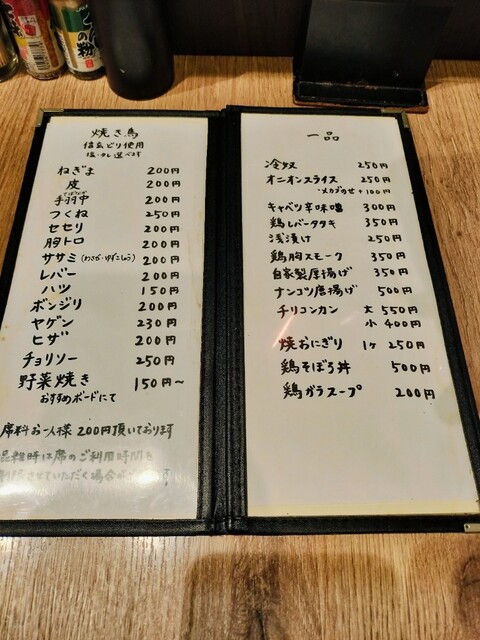 の粉
焼き鳥
信玄どり使用
塩・タレ選べます
ねぎま 200円
皮 200円
手羽中 200円
つくね 250円
セセリ 200円
胸トロ 200円
ササミ(わさび・ゆずこしょう) 200円
レバー 200円
ハツ 150円
ボンジリ 200円
ヤゲン 230円
ヒザ 200円
チョリソー 250円
野菜焼き 150円〜
おすすめボードにて
席料お一人様 200円頂いております
混雑時は席のご利用時間を
制限させていただく場合が
一品
冷奴 250円
オニオンスライス 250円
・メカブのせ +100円
キャベツ辛味噌 300円
鶏レバータタキ 350円
浅漬け 250円
鶏胸スモーク 350円
自家製厚揚げ 350円
ナンコツ唐揚げ 500円
チリコンカン 大 550円
小 400円
焼おにぎり 1ヶ 250円
鶏そぼろ丼 500円
鶏ガラスープ 200円